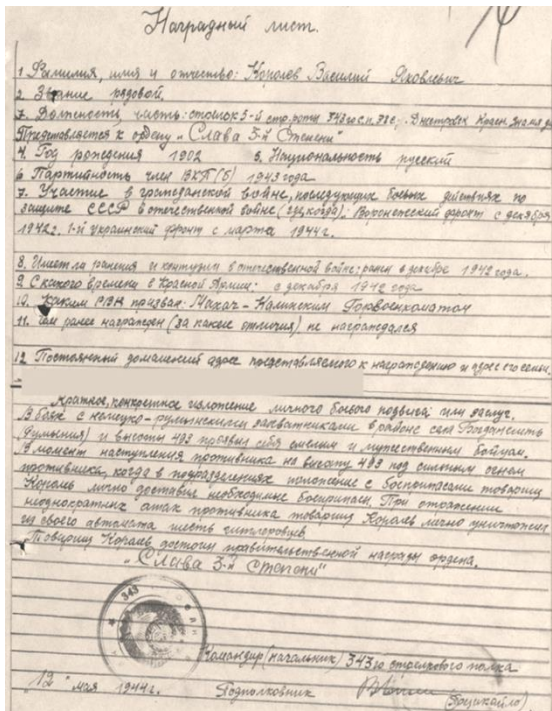 Наградный лист.
1 Фамилия, имя и отчество: Королев Василий Яковлевич
2. Звание рядовой.
3. Должность, часть: стрелок 5-й стр. роты 343го с.п. 38с. Днестровск. Красн. Знамя
Представляется к ордену „Слава 3-й Степени"
4. Год рождения 1902 5. Национальность русский
6 Партийность член ВКП(б) 1943 года
7. Участие в гражданской войне, последующих боевых действиях по
защите СССР в отечественной войне (где, когда). Воронежский фронт с декабря
1942г. 1-й Украинский фронт с марта 1944г.
8. Имеет ли ранения и контузии в отечественной войне: ранен в декабре 1942 года.
9. С какого времени в Красной Армии: с декабря 1942 года
10. Каким РВК призван: Махач-Калинским Горвоенкоматом
11. Чем ранее награжден (за какие отличия) не награждался
12 Постоянный домашний адрес представляемого к награждению и адрес его семьи.
Краткое, конкретное изложение личного боевого подвига или заслуг.
В боях с немецко-румынскими захватчиками в районе села
(Румыния) и высоты 493 проявил себя смелым и мужественным бойцом.
В момент наступления противника на высоту 493 под сильным огнем
противника, когда в подразделениях положение с боеприпасами товарищ
Королев лично доставил необходимые боеприпасы. При отражении
неоднократных атак противника товарищ Королев лично уничтожил
из своего автомата шесть гитлеровцев.
Товарищ Королев достоин правительственной награды ордена.
„Слава 3-й Степени"
343
Командир (начальник) 343го стрелкового полка
12 мая 1944г. Подполковник